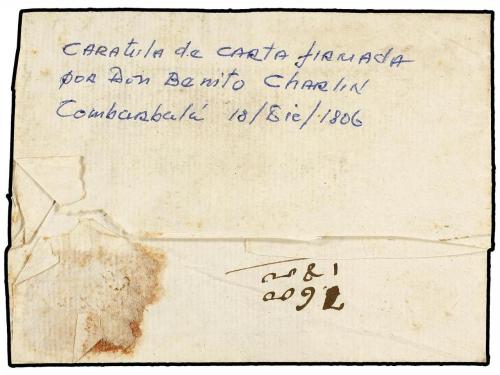 CARATULA de CARTA FIRMADA
POR DON Benito CHARLIN
Combarbalá 18/Dic/1806